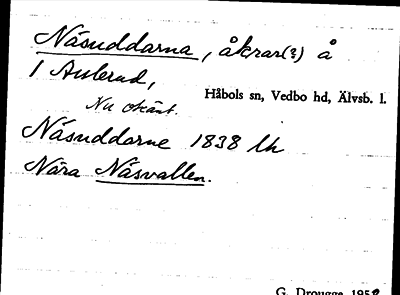 Näsuddarna, åkrar(?) å
1 Auserud,
Håbols sn, Vedbo hd, Älvsb. l.
Nu okänt.
Näsuddarne 1838 lh
Nära Näsvallen.
G. Drougge 1952